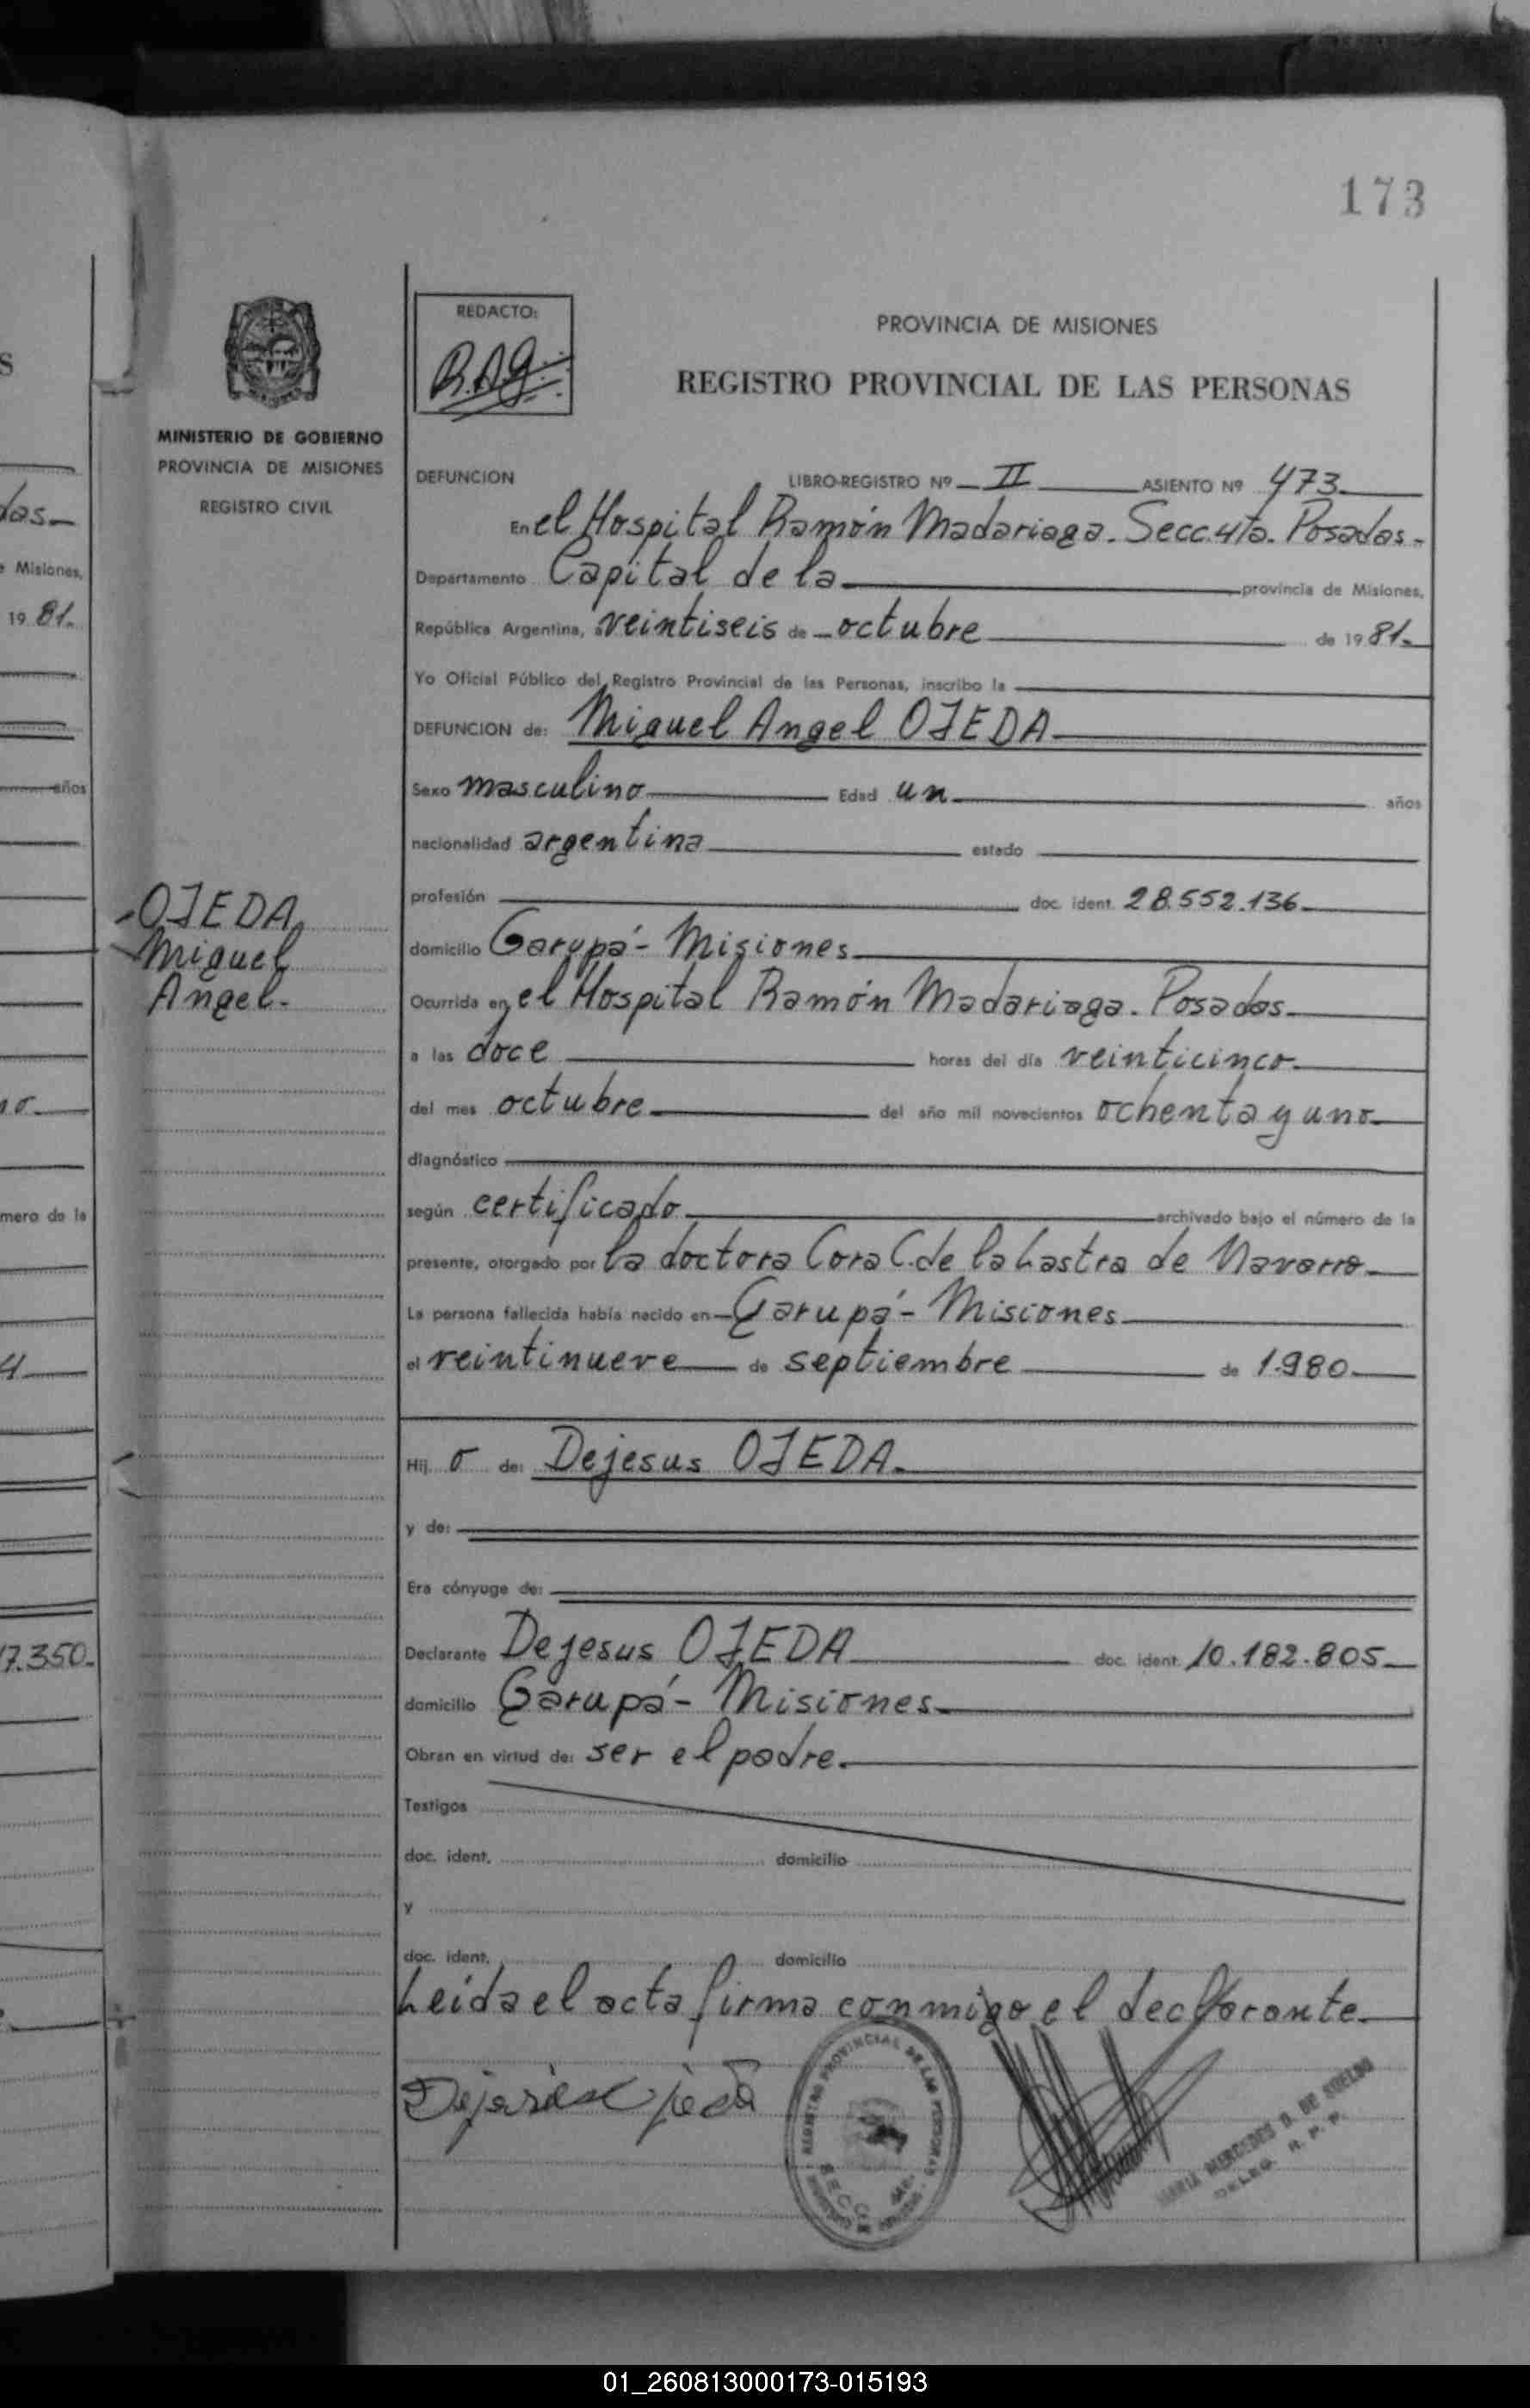 173
REDACTO:
R.A.G.
PROVINCIA DE MISIONES
REGISTRO PROVINCIAL DE LAS PERSONAS
MINISTERIO DE GOBIERNO
PROVINCIA DE MISIONES
REGISTRO CIVIL
OJEDA,
Miguel
Angel.-
DEFUNCION LIBRO-REGISTRO Nº II ASIENTO Nº 473
En el Hospital Ramón Madariaga. Secc. 4ta. Posadas.-
Departamento Capital de la provincia de Misiones,
República Argentina, a veintiseis de octubre de 1981.
Yo Oficial Público del Registro Provincial de las Personas, inscribo la
DEFUNCION de: Miguel Angel OJEDA
Sexo masculino Edad un años
nacionalidad argentina estado
profesión doc. ident. 28.552.136
domicilio Garupá - Misiones
Ocurrida en el Hospital Ramón Madariaga. Posadas.
a las doce horas del día veinticinco
del mes octubre del año mil novecientos ochenta y uno
diagnóstico
según certificado archivado bajo el número de la
presente, otorgado por la doctora Cora C. de la Lastra de Navarro
La persona fallecida había nacido en Garupá - Misiones
el veintinueve de septiembre de 1.980.
Hij o de: Dejesus OJEDA.
y de:
Era cónyuge de:
Declarante Dejesus OJEDA doc. ident. 10.182.805
domicilio Garupá - Misiones
Obran en virtud de: ser el padre.
Testigos
doc. ident. domicilio
y
doc. ident. domicilio
Leida el acta firma conmigo el declarante.
REGISTRO PROVINCIAL DE LAS PERSONAS
MARIA MERCEDES D. DE SUELDO
DELEG. R. P. P.
S
das
e Misiones,
19 81.
años
no
mero de la
4
17.350.
01_260813000173-015193